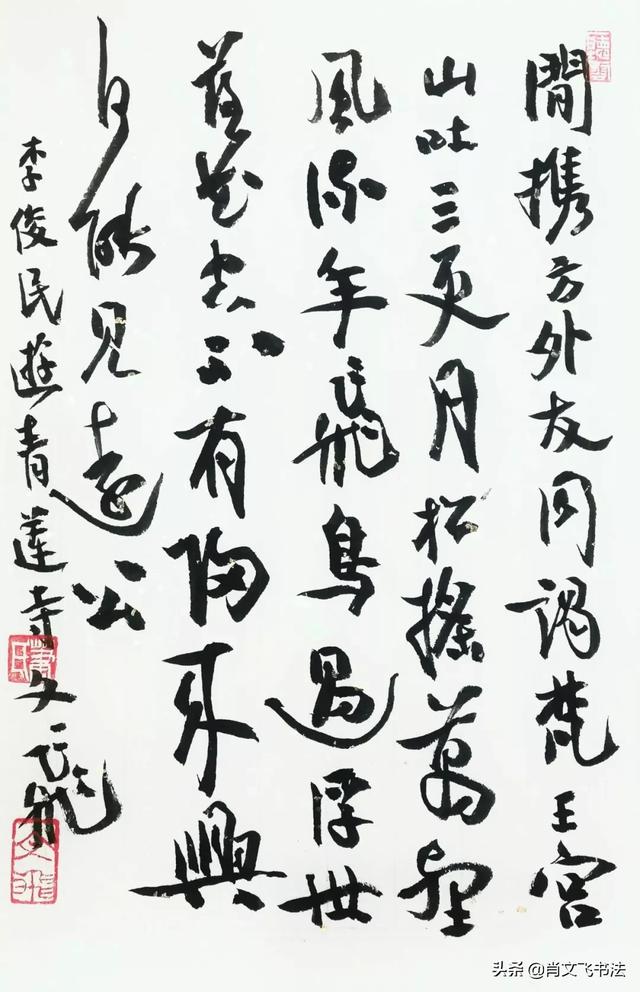 閒携方外友同謁梵王宮
山吐三更月松搖萬壑
風流年飛鳥過浮世
落花空不有歸来興
何能見遠公
李俊民遊青蓮寺 文飛
文飛
头条 @肖文飞书法